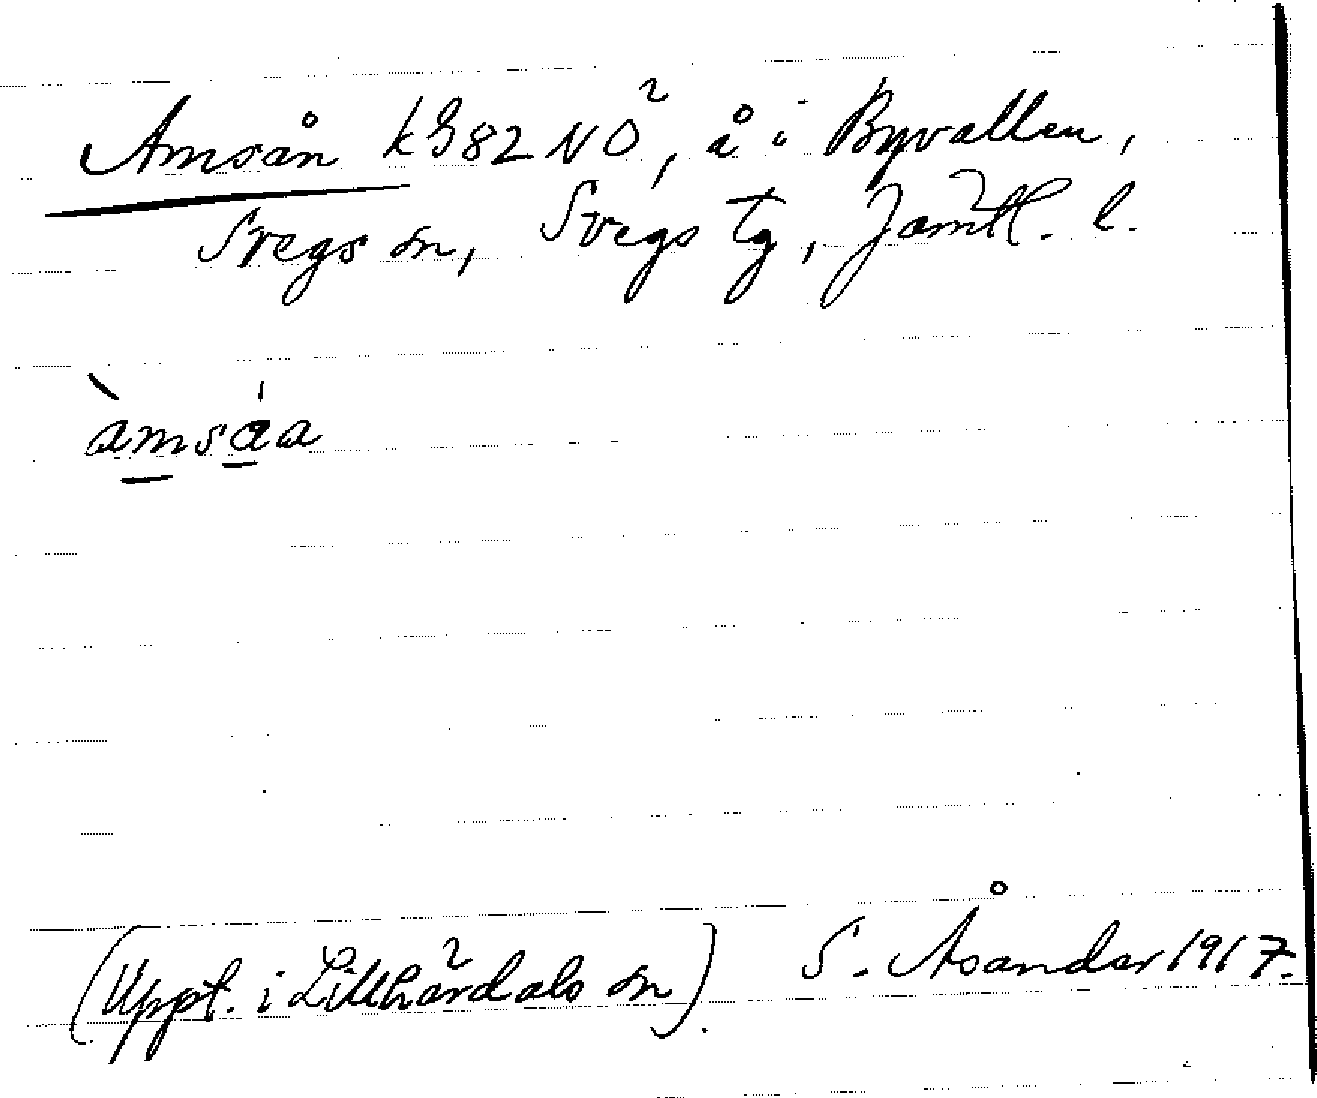 Amsån kG82NÖ, å i Byvallen,
Svegs sn, Svegs tg, Jämtl. l.
àmsáa
(Uppt. i Lillhärdals sn). S. Åsander 1917.